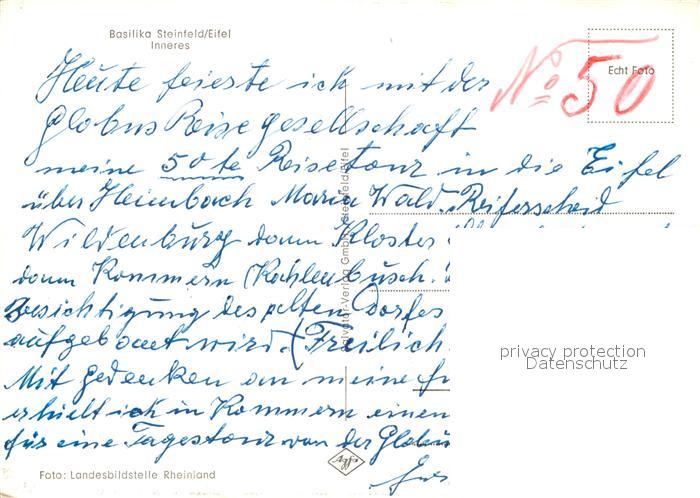 Basilika Steinfeld/Eifel
Inneres
No 50
Echt Foto
Heute feierte ich mit der
Globus Reise gesellschaft
meine 50te Reisetour in die Eifel
über Heimbach Maria Wald. Reiferscheid
Wildenburg dann Kloster
dann Kommern (Kahlenbusch.
Besichtigung des alten Dorfes
aufgebaut wird. (Freilich
Mit gedenken an meine
erhielt ich in Kommern einen
für eine Tagestour von der Globus
Salvator-Verlag GmbH Steinfeld/Eifel
privacy protection
Datenschutz
Foto: Landesbildstelle Rheinland
Agfa